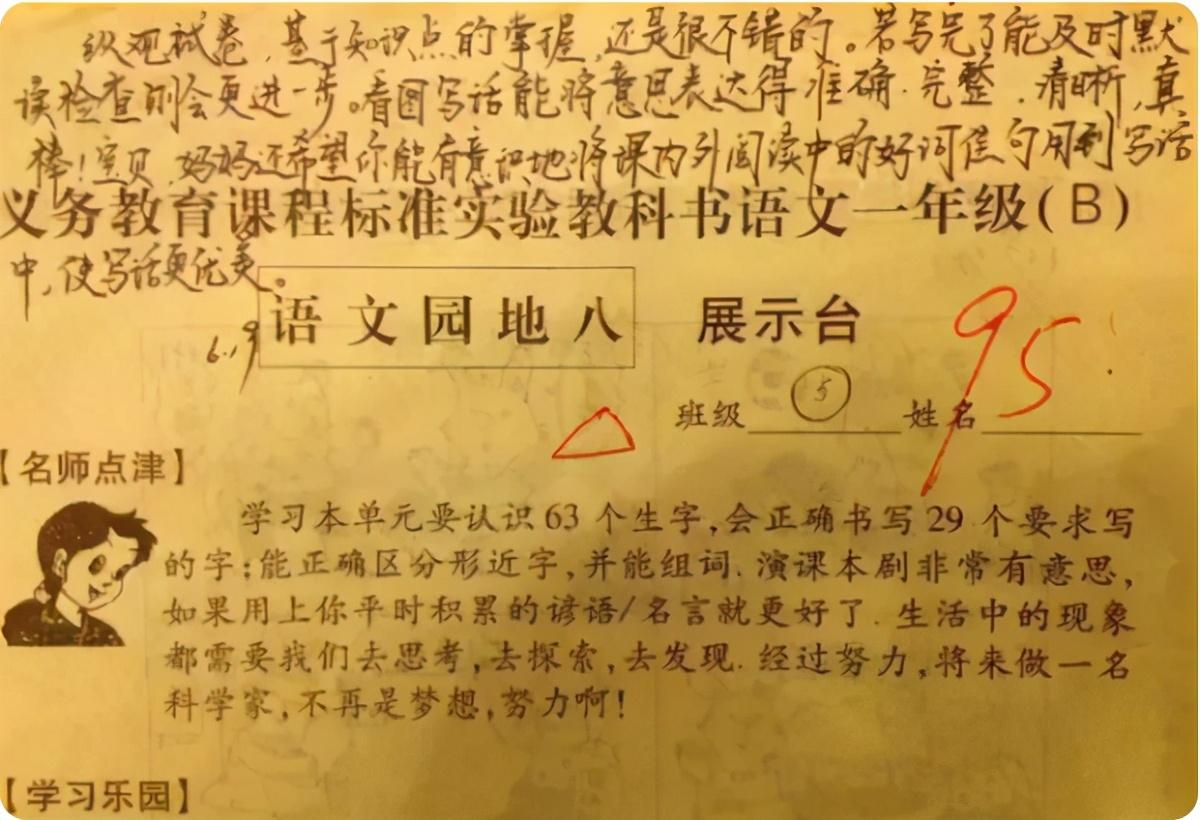 纵观试卷,基于知识点的掌握,还是很不错的。若写完了能及时默
读检查则会更进一步。看图写话能将意思表达得准确、完整、清晰,真
棒!宝贝,妈妈还希望你能有意识地将课内外阅读中的好词佳句用到写话
义务教育课程标准实验教科书语文一年级(B)
中,使写话更优美。
语文园地八 展示台
95
6.19
班级 5 姓名
【名师点津】
学习本单元要认识63个生字,会正确书写29个要求写
的字;能正确区分形近字,并能组词.演课本剧非常有意思,
如果用上你平时积累的谚语/名言就更好了.生活中的现象
都需要我们去思考,去探索,去发现.经过努力,将来做一名
科学家,不再是梦想,努力啊!
【学习乐园】